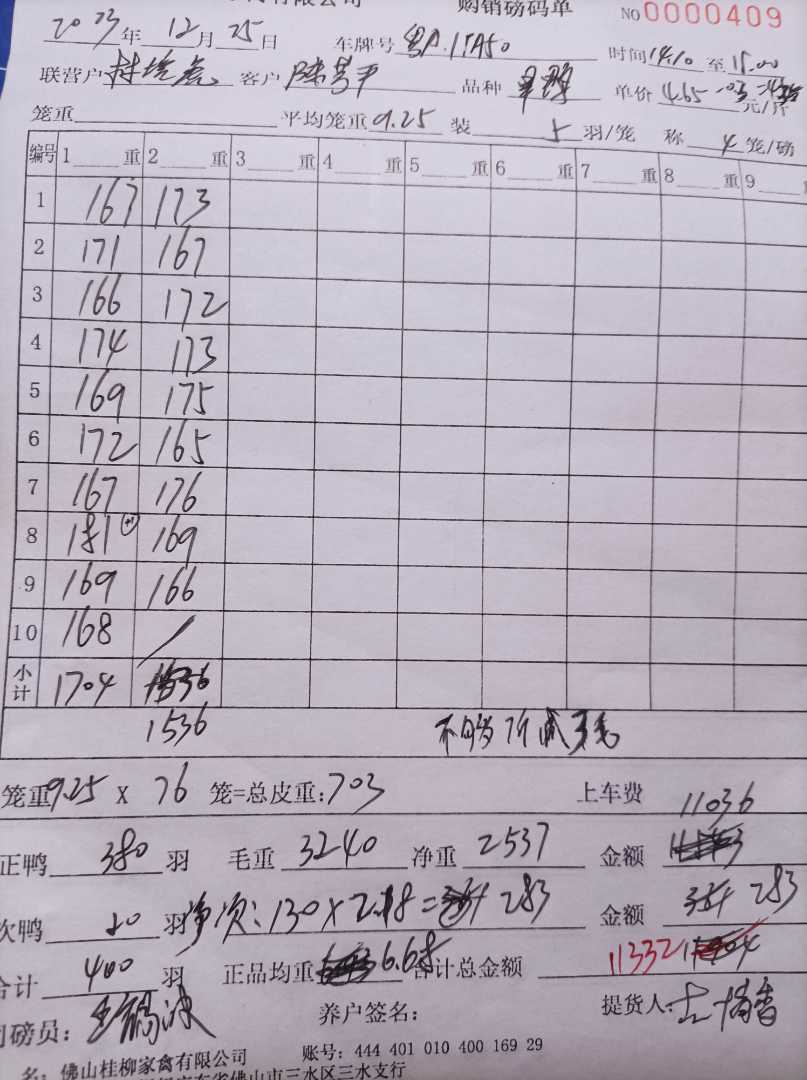 购销磅码单 NO 0000409
2023年 12月 25日 车牌号 粤A.1TA50 时间 14.10 至 15.00
联营户 客户 陈 平 品种 单价 4.65 元/斤
笼重 平均笼重 9.25 装 5 羽/笼 称 4 笼/磅
编号 1 重 2 重 3 重 4 重 5 重 6 重 7 重 8 重 9
1 167 173
2 171 167
3 166 172
4 174 173
5 169 175
6 172 165
7 167 176
8 181 169
9 169 166
10 168 /
小计 1704
1536
不够7斤减
笼重 9.25 X 76 笼=总皮重: 703 上车费
11036
正鸭 380 羽 毛重 3240 净重 2537 金额
次鸭 20 羽 净次: 130 x 2.18 = 283 金额 283
合计 400 羽 正品均重 6.68 合计总金额 11332
司磅员: 养户签名: 提货人:
名: 佛山桂柳家禽有限公司 账号: 444 401 010 400 169 29
佛山市三水区三水支行